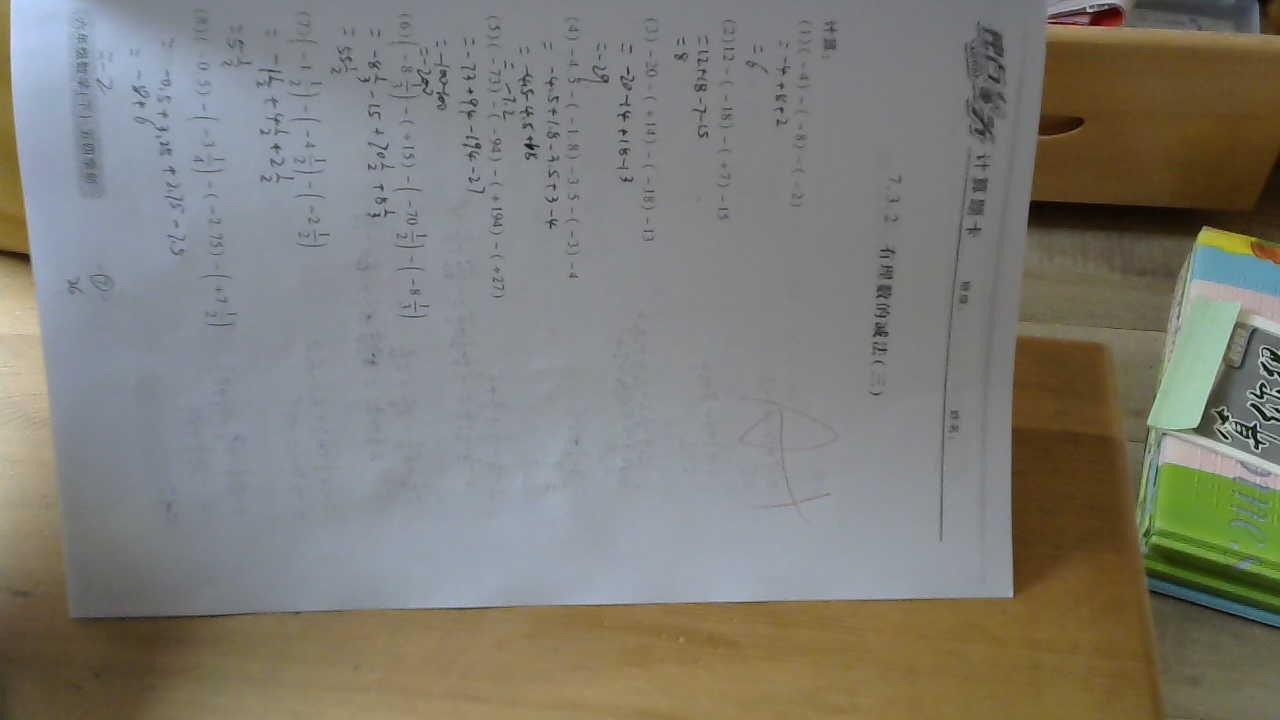 计算题卡
班级：
姓名：
7.3.2 有理数的减法(三)
计算:
(1)(-4)-(-8)-(-2)
= -4+8+2
= 6
(2)12-(-18)-(+7)-15
=12+18-7-15
=8
(3)-20-(+14)-(-18)-13
= -20-14+18-13
=-29
(4)-4.5-(-1.8)-3.5-(-3)-4
= -4.5+1.8-3.5+3-4
= -7.2
(5)(-73)-(-94)-(+194)-(+27)
=-73+94-194-27
=-100-100
=-200
(6)(-8 1/3)-(+15)-(-70 1/2)-(-8 1/3)
= -8 1/3-15+70 1/2+8 1/3
= 55 1/2
(7)(-1 1/2)-(-4 1/2)-(-2 1/2)
= -1 1/2+4 1/2+2 1/2
=5 1/2
(8)(-0.5)-(-3 1/4)-(-2.75)-(+7 1/2)
= -0.5+3.25+2.75-7.5
= -8+6
=-2
六年级数学(下) 五四学制